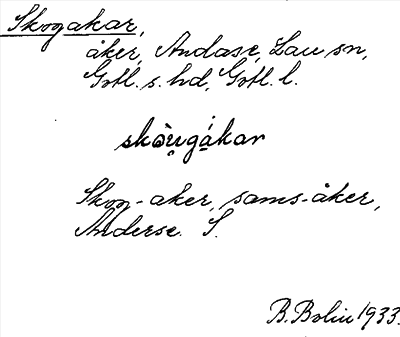 Skogakar,
åker, Andase, Lau sn,
Gotl. s. hd, Gotl. l.
skòu̯gákar
Skog-aker, sams-åker,
Anderse S.
B. Bolin 1933.